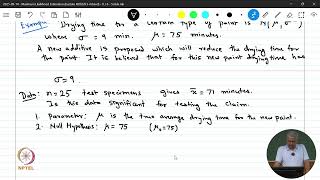 Example: Drying time for a certain type of paint is N(μ, σ²)
where σ = 9 min. μ = 75 minutes.
A new additive is proposed which will reduce the drying time for
the paint. It is believed that for this new paint drying time has
σ = 9.
Data: n = 25 test specimens gives x̄ = 71 minutes.
Is this data significant for testing the claim.
1. Parameter: μ is the true average drying time for the new paint.
2. Null Hypothesis: μ = 75 (μ₀ = 75)
NPTEL